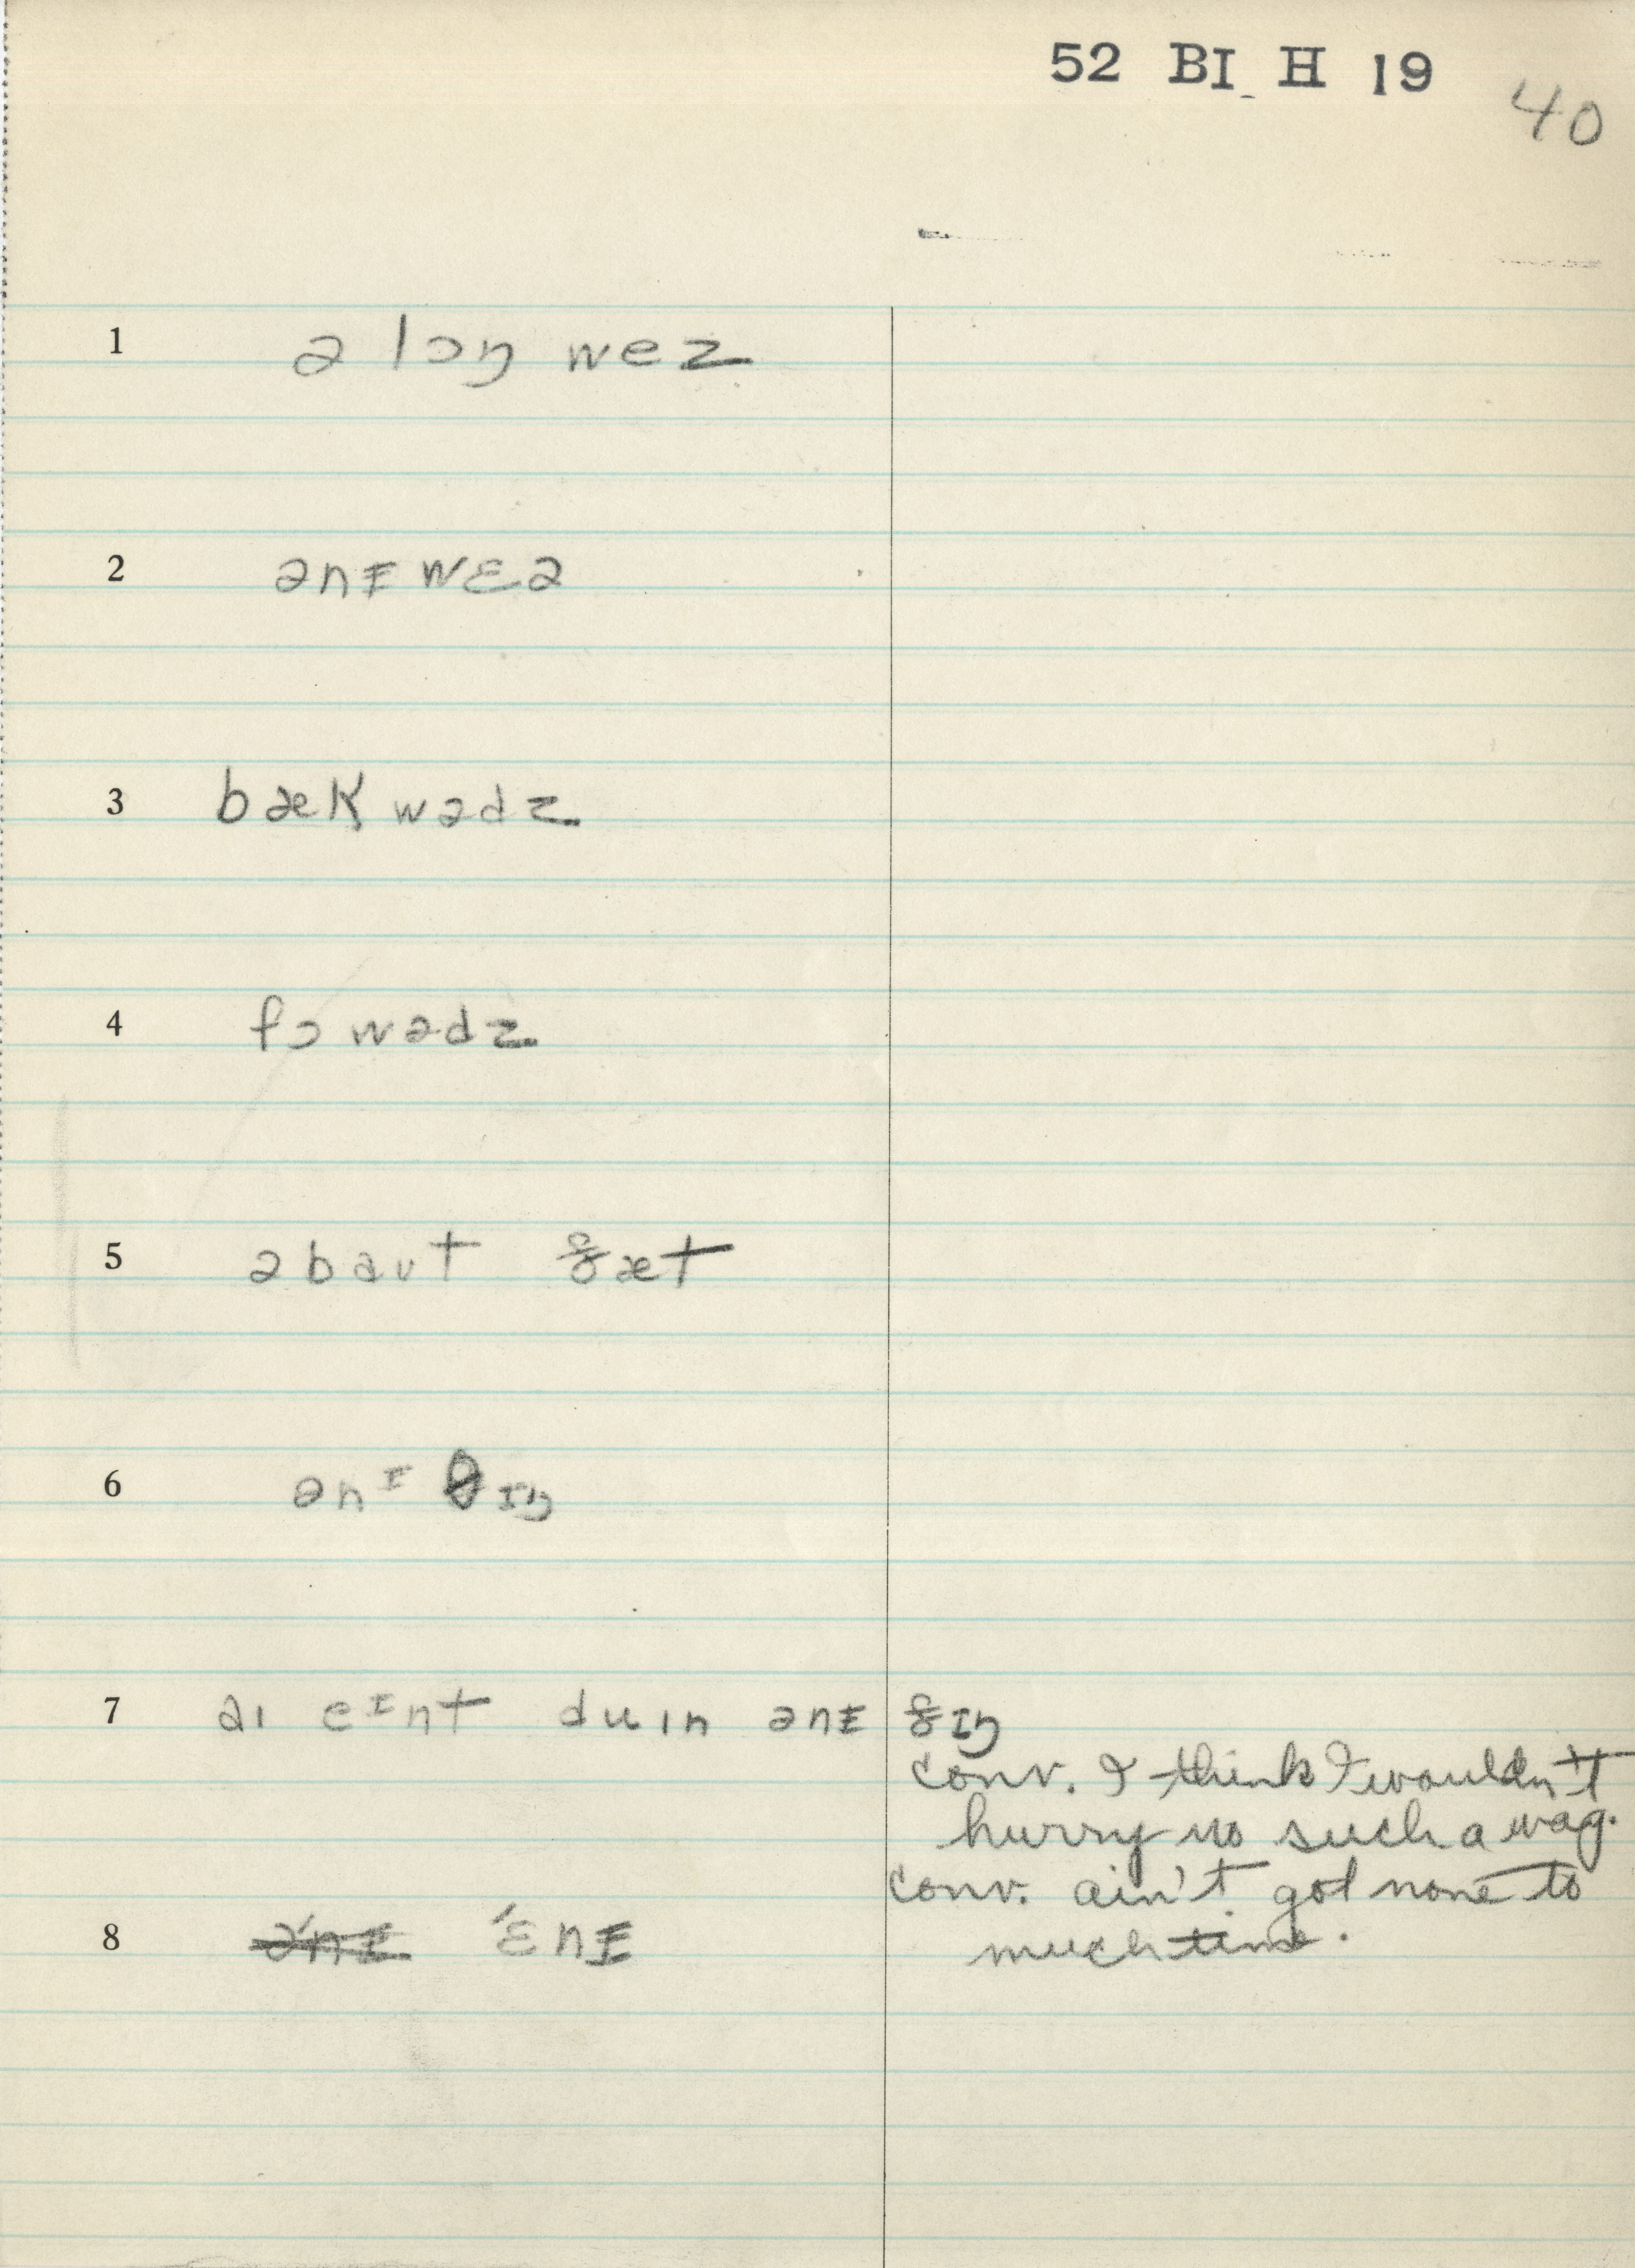 52 BI H 19
40
1 ə lɔŋ wez
2 ənɪ wɛə
3 bæk wədz
4 fɔ wədz
5 əbaut θæt
6 ənɪ θɪŋ
7 aɪ eɪnt duɪn ənɪ θɪŋ
conv. I think I wouldn't
hurry no such a wag.
conv. ain't got none to
8 ə'nɪ 'ɛnɪ
much time.